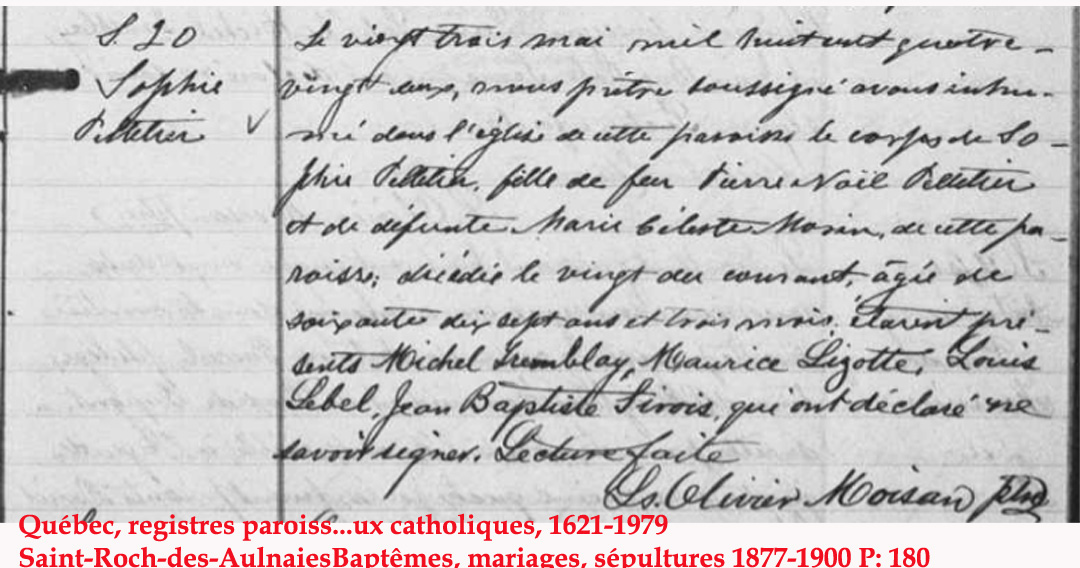 S. 20
Sophie
Pelletier
Le vingt trois mai mil huit cent quatre-
vingt deux, nous prêtre soussigné avons inhu-
mé dans l'église de cette paroisse le corps de So-
phie Pelletier, fille de feu Pierre Noël Pelletier
et de défunte Marie Céleste Morin, de cette pa-
roisse, décédée le vingt du courant, âgée de
soixante dix sept ans et trois mois. étaient pré-
sents Michel Tremblay, Maurice Lizotte, Louis
Lebel, Jean Baptiste Sirois, qui ont déclaré ne
savoir signer. Lecture faite
Ls. Olivier Moisan ptre
Québec, registres paroiss...ux catholiques, 1621-1979
Saint-Roch-des-AulnaiesBaptêmes, mariages, sépultures 1877-1900 P: 180